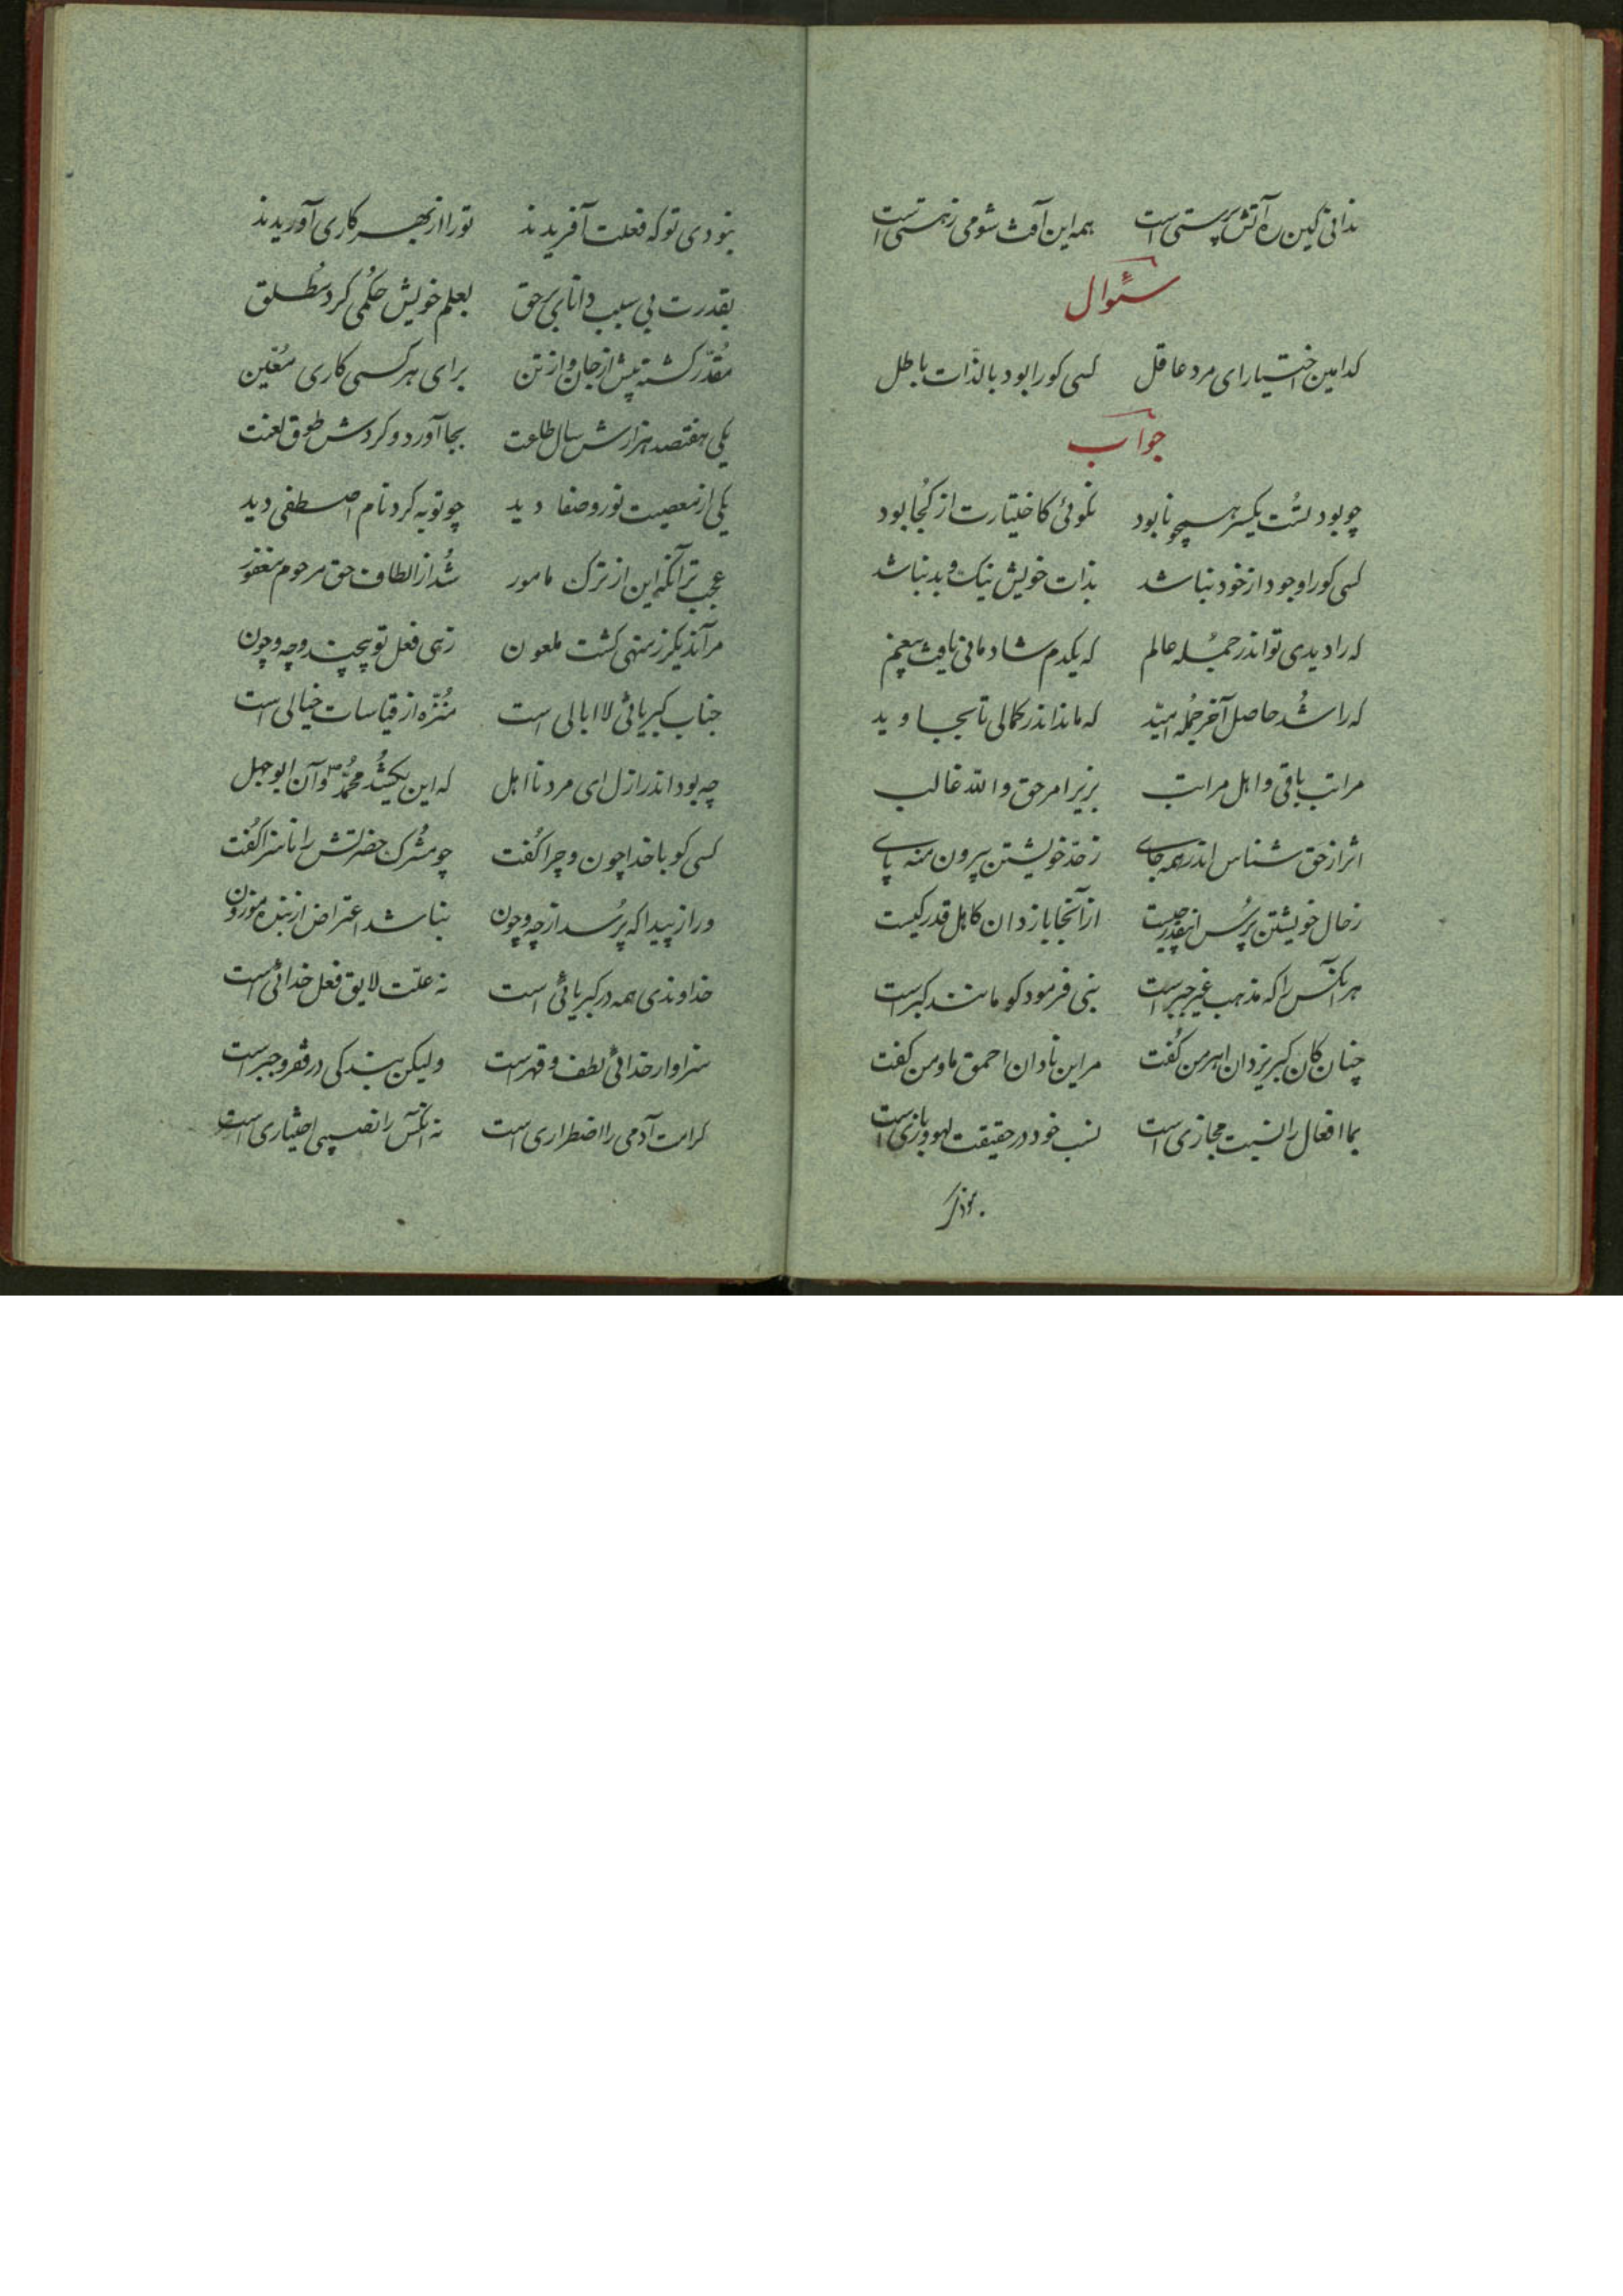 ندانی کین ره آتش پرستی است همه این آفت شومی ز هستی است
سئوال
کدامین اختیار ای مرد عاقل کسی کو را بود بالذّات باطل
جواب
چو بود تست یکسر همچو نابود نگوئی کاختیارت از کجا بود
کسی کورا وجود از خود نباشد بذات خویش نیک و بد نباشد
که را دیدی تو اندر جمله عالم که یکدم شادمانی یافت بیغم
که را شد حاصل آخر جمله امید که ماند اندر کمالی تا بجاوید
مراتب باقی و اهل مراتب بزیر امر حق والله غالب
اثر از حق شناس اندر همه جای ز حدّ خویشتن بیرون منه پای
ز حال خویشتن پرس اینقدر چیست از آنجا بازدان کاهل قدر کیست
هر آنکس را که مذهب غیر جبر است نبی فرمود کو مانند گبر است
چنان کان گبر یزدان اهرمن گفت مر این نادان احمق ما و من گفت
بما افعال را نسبت مجازی است نسب خود در حقیقت لهو و بازی است
نبودی تو که فعلت آفریدند تو را از بهر کاری آوریدند
بقدرت بی سبب دانای بر حق بعلم خویش حکمی کرد مطلق
مُقدّر گشته پیش از جان و از تن برای هر کسی کاری مُعیّن
یکی هفتصد هزارش سال طاعت بجا آورد و کردش طوق لعنت
یکی از معصیت نور و صفا دید چو توبه کرد نام اصطفی دید
عجب تر آنکه این از ترک مامور شُد از الطاف حق مرحوم مغفور
مر آندیگر ز منهی گشت ملعون زهی فعل تو بیچند و چه و چون
جناب کبریائی لا ابالی است مُنزّه از قیاسات خیالی است
چه بود اندر ازل ای مرد نااهل که این یک شُد محمّد ص و آن ابوجهل
کسی کو با خدا چون و چرا گفت چو مُشرک حضرتش را ناسزا گفت
ورا زیبد که پُرسد از چه و چون نباشد اعتراض از بنده موزون
خداوندی همه در کبریائی است نه علّت لایق فعل خدائی است
سزاوار خدائی لطف و قهر است ولیکن بندگی در فقر و جبر است
کرامت آدمی را اضطراری است نه آنکس را نصیبی اختیاری است